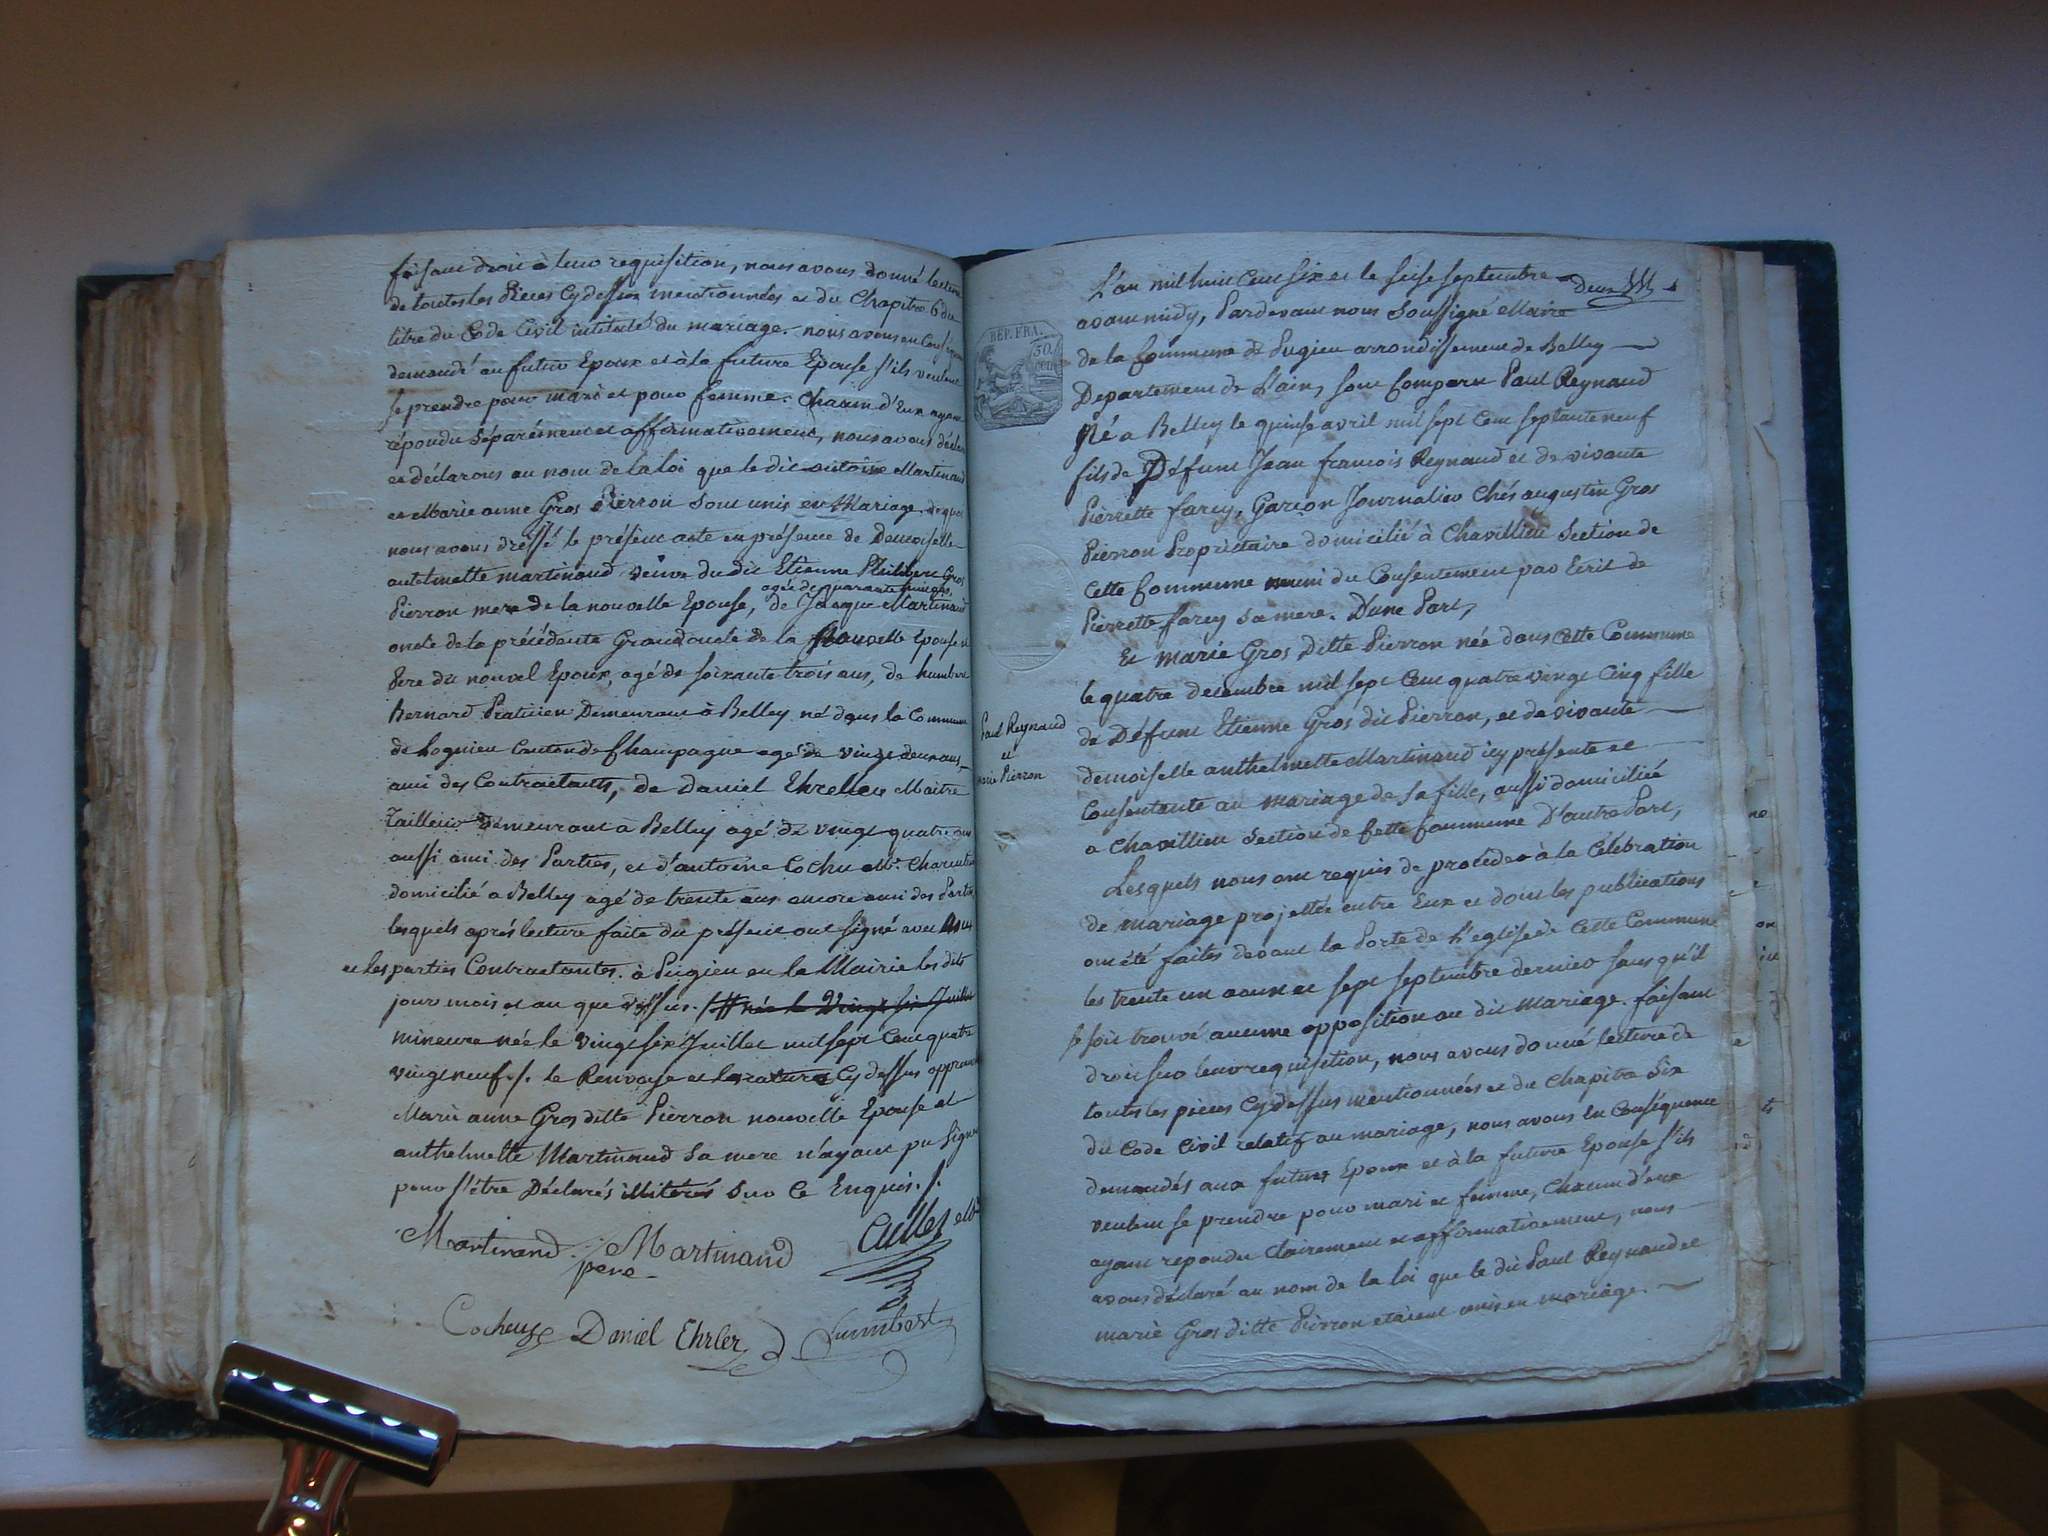 faisant droit à leur requisition, nous avons donné lecture
de toutes les Pieces Cy dessus mentionnées et du Chapitre 6 du
titre du Code Civil intitulé du mariage. nous avons en Conséq
demandé au futur Epoux et à la future Epouse s'ils veulent
se prendre pour mari et pour femme. Chacun d'Eux ayant
répondu Séparément et affirmativement, nous avons déclaré
et déclarons au nom de la loi que le dit antoine Martinand
et Marie anne Gros Pierron Sont unis en Mariage. de quoi
nous avons dressé le présent acte en présence de Demoiselle
antelmette martinand veuve du dit Etienne Philibert Gros
agée de quarante cinq ans,
Pierron mere de la nouvelle Epouse, de Jacque Martinand
oncle de la précédente Grand oncle de la nouvelle Epouse et
Pere du nouvel Epoux, agé de soixante trois ans, de humbert
bernard Praticien Demeurant à Belley né dans la Commune
de Lognieu Canton de Champagne agé de vingt deux ans,
ami des Contractants, de Daniel Ehreler Maitre
Tailleur demeurant à Belley agé de vingt quatre ans
aussi ami des Parties, et d'antoine Cochu Me. Charcutier
domicilié a Belley agé de trente ans encore ami des Parties
lesquels après lecture faite du présent ont signé avec nous
et les parties Contractantes. à Pugieu en la Mairie les dits
jour mois et an que dessus. /# née le vingt six Juillet
mineure née le vingt six Juillet mil sept Cent quatre
vingt neuf ./. le Renvoye et la rature Cy dessus approuvé
Marie anne Gros ditte Pierron nouvelle Epouse et
anthelmette Martinand Sa mere n'ayant pu Signer
pour s'être Déclarés illiterés Sur Ce Enquis ./.
Martinand Martinand Caillet
pere
Cocheux Daniel Ehrler humbert
L'an mil huit Cent six et le seise septembre Deux
avant midy, Pardevant nous Soussigné Maire
REP. FRA.
50
CEN.
de la Commune de Pugieu arrondissement de Belley
Departement de L'ain, sont Comparu Paul Reynaud
Né a Belley le quinse avril mil sept Cent septante neuf
fils de Défunt Jean francois Reynaud et de vivante
Pierrette farcy, Garcon Journalier Chés augustin Gros
Pierron Propriétaire domicilié à Chavillieu Section de
Cette Commune muni du Consentement par Ecrit de
Pierrette farcy sa mere. D'une Part,
Et marie Gros ditte Pierron née dans Cette Commune
le quatre decembre mil sept Cent quatre vingt Cinq fille
Paul Reynaud
et
marie Pierron
de Défunt Etienne Gros dit Pierron, et de vivante
demoiselle anthelmette Martinaud icy présente et
Consentante au mariage de sa fille, aussi domiciliée
a Chavillieu Section de Cette Commune D'autre Part,
Lesquels nous ont requis de procéder à la Célébration
de mariage projettée entre Eux et dont les publications
ont été faites devant la Porte de L'eglise de Cette Commune
les trente un aoust et sept septembre dernier sans qu'il
se soit trouvé aucune opposition au dit mariage. faisant
droit sur leur requisition, nous avons donné lecture de
toutes les pieces Cy dessus mentionnées et du Chapitre Six
du Code Civil relatif au mariage, nous avons en Conséquence
demandés aux futurs Epoux et à la future Epouse s'ils
veulent se prendre pour mari et femme, Chacun d'eux
ayant repondu Clairement et affirmativement, nous
avons déclaré au nom de la loi que le dit Paul Reynaud et
marie Gros ditte Pierron etaient unis en mariage.